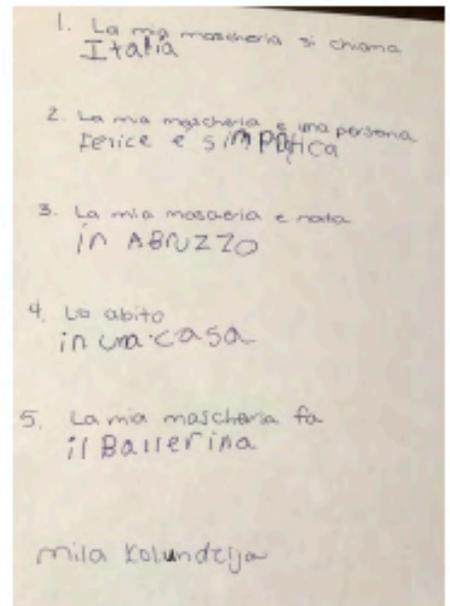 1. La mia mascheria si chiama
Italia
2. La mia mascheria e una persona
Felice e simpatica
3. La mia mascheria e nata
in ABRUZZO
4. Lo abito
in una casa
5. La mia mascheria fa
il Ballerina
mila Kolundzija